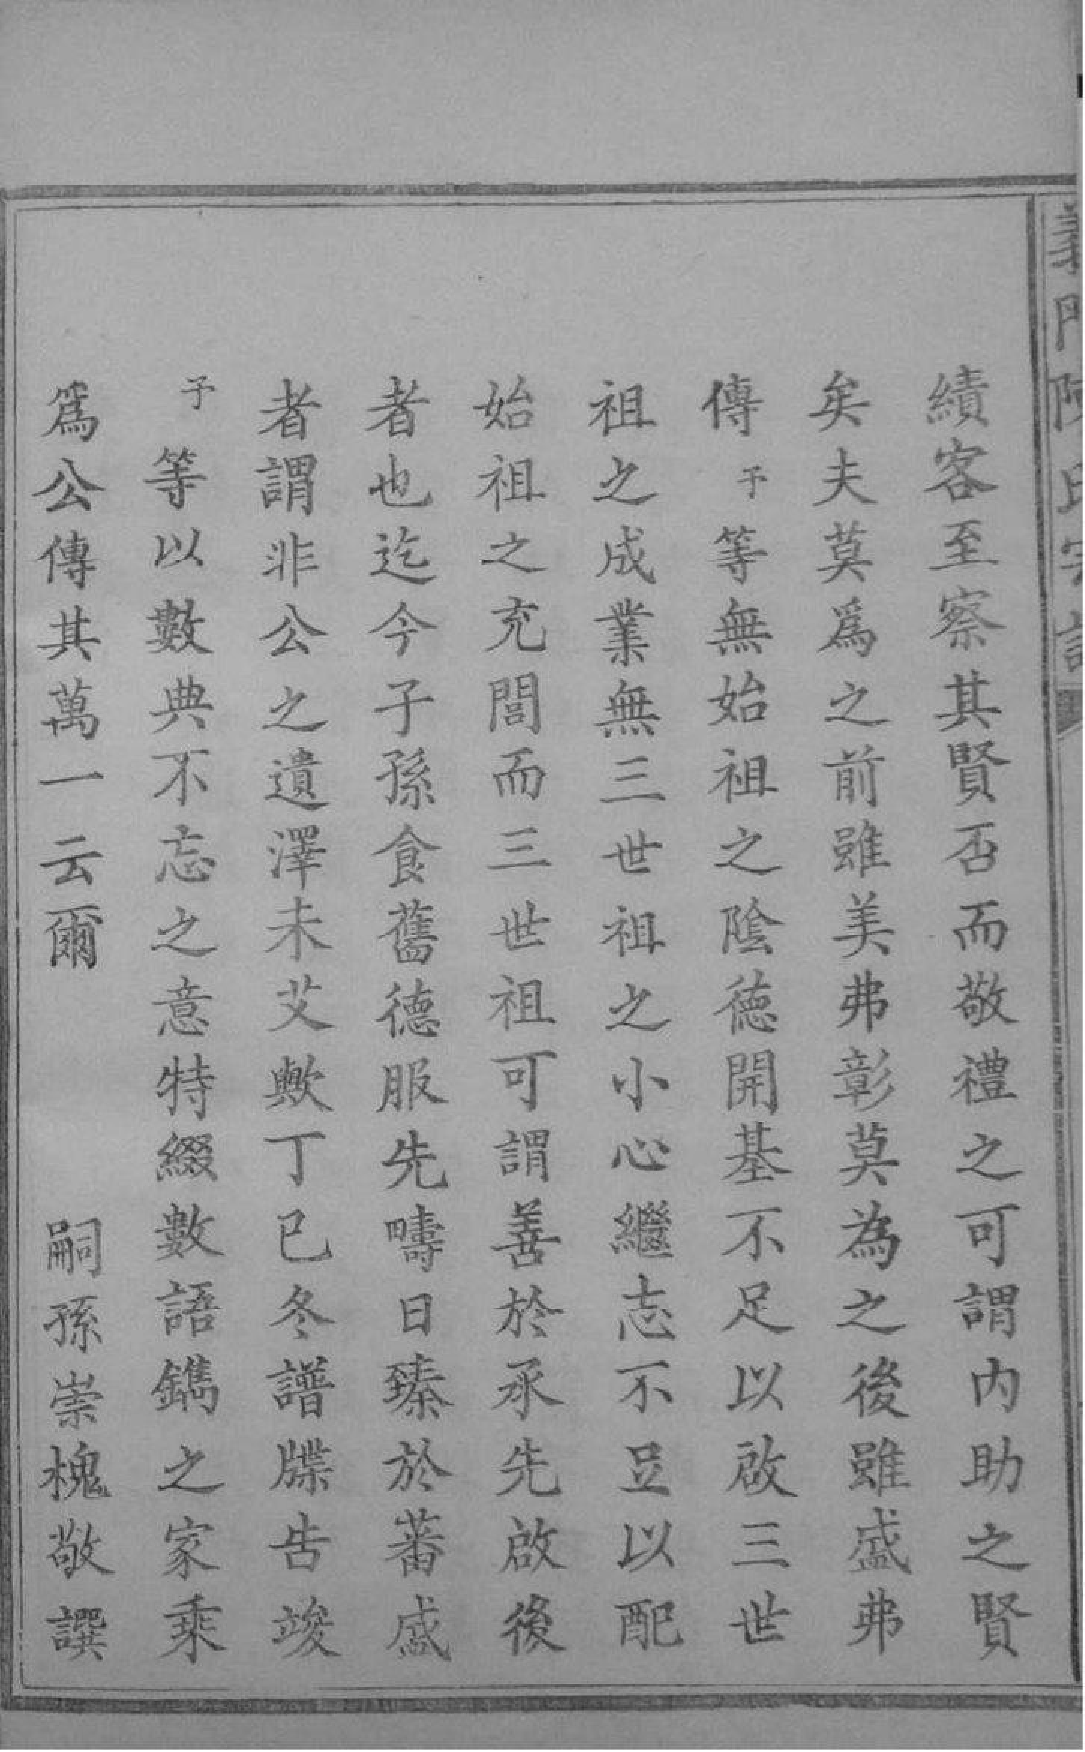 義門陳氏宗譜
績客至察其賢否而敬禮之可謂内助之賢
矣夫莫爲之前雖美弗彰莫為之後雖盛弗
傳予等無始祖之陰德開基不足以啟三世
祖之成業無三世祖之小心繼志不足以配
始祖之充閭而三世祖可謂善於承先啟後
者也迄今子孫食舊德服先疇日臻於蕃盛
者謂非公之遺澤未艾歟丁巳冬譜牒告竣
予等以數典不忘之意特綴數語鐫之家乘
爲公傳其萬一云爾 嗣孫崇槐敬譔